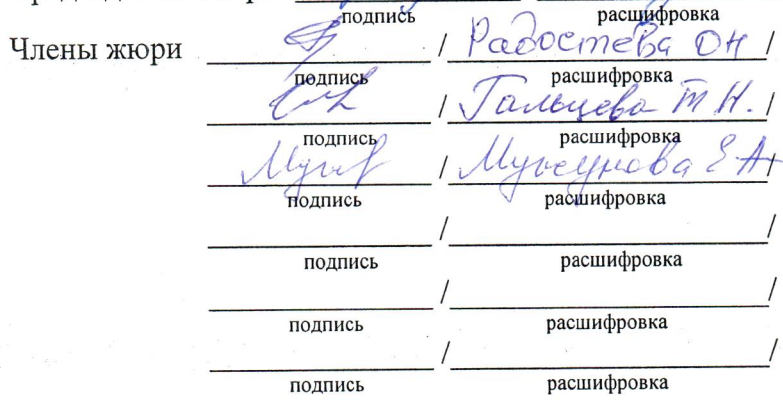 подпись расшифровка
Члены жюри / Радостева ОН /
подпись расшифровка
/ Гальцева Т Н. /
подпись расшифровка
/ Е А /
подпись расшифровка
/ /
подпись расшифровка
/ /
подпись расшифровка
/ /
подпись расшифровка